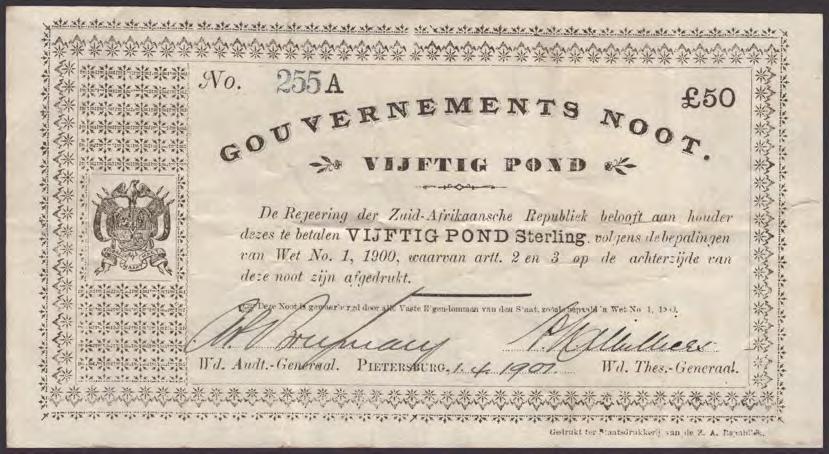 No. 255 A £50
GOUVERNEMENTS NOOT.
VIJFTIG POND
De Regeering der Zuid-Afrikaansche Republiek belooft aan houder
dezes te betalen VIJFTIG POND Sterling, volgens de bepalingen
van Wet No. 1, 1900, waarvan artt. 2 en 3 op de achterzijde van
deze noot zijn afgedrukt.
Deze Noot is gewaarborgd door alle Vaste Eigendommen van den Staat, zooals bepaald in Wet No 1, 1900.
Wd. Audt.-Generaal. PIETERSBURG, 1.4.1901 Wd. Thes.-Generaal.
Gedrukt ter Staatsdrukkerij van de Z. A. Republiek.